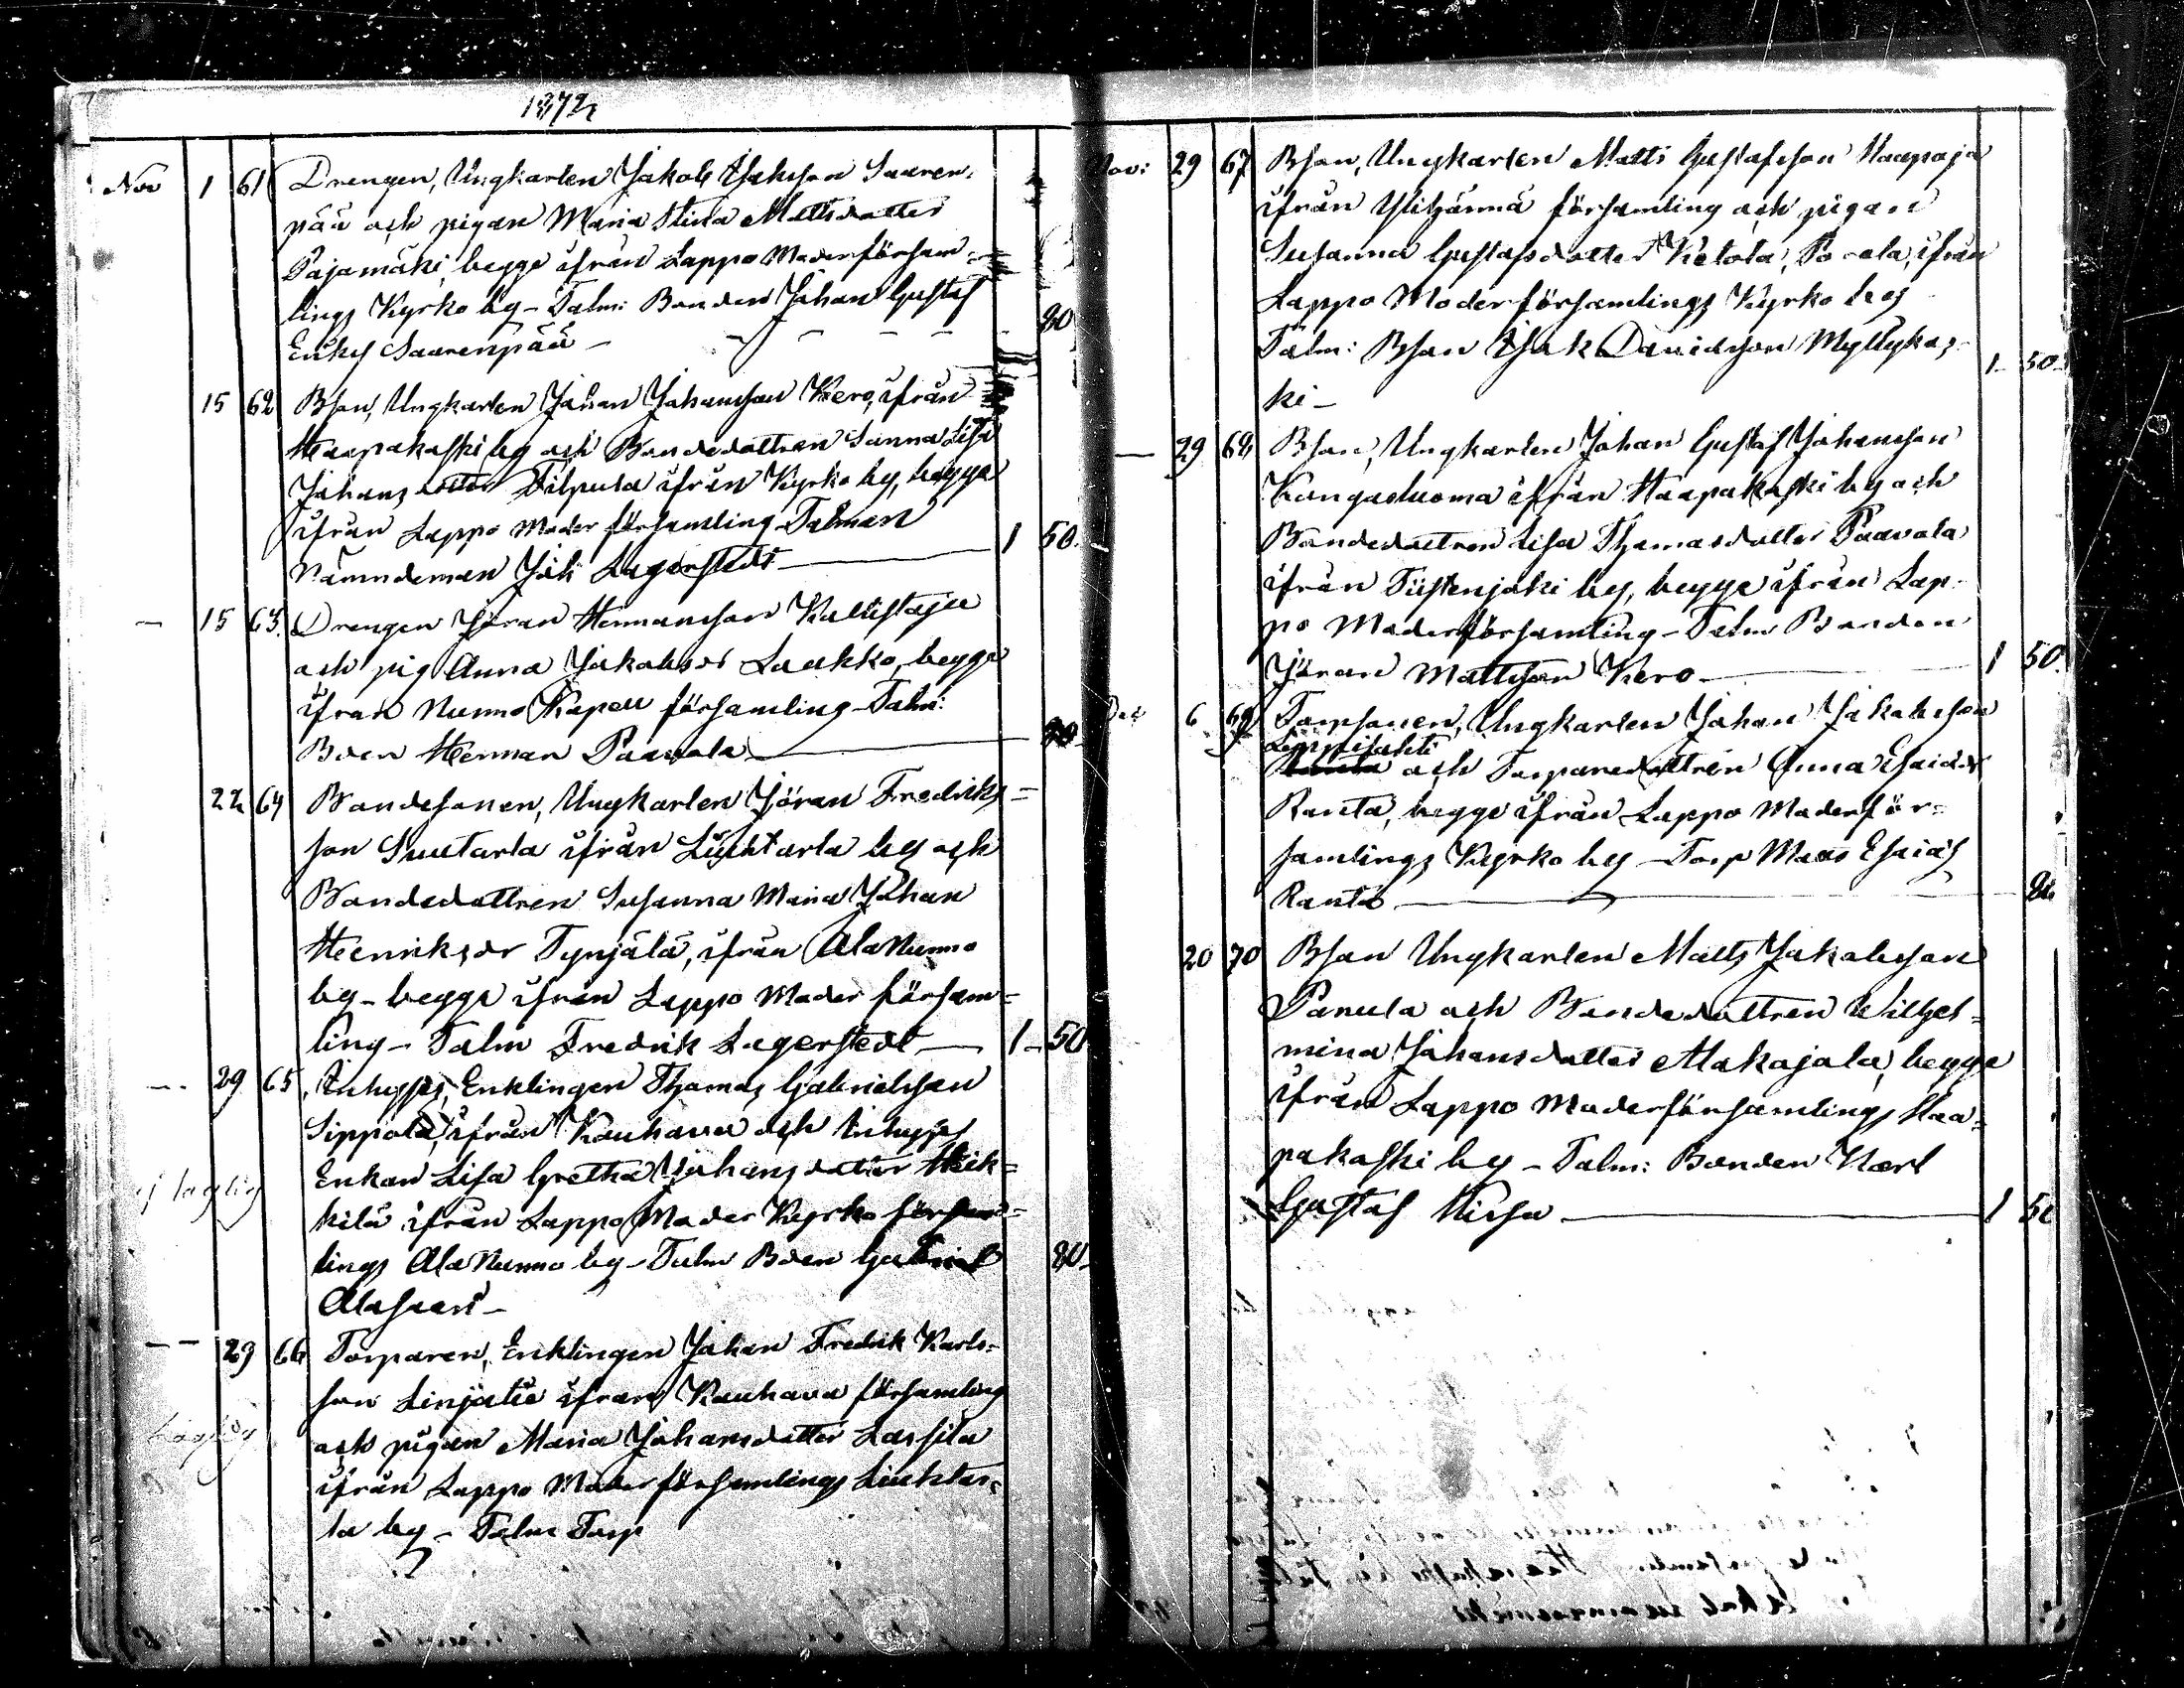 1872
Nov 1 61 Drengen, Ungkarlen Jakob Isaksson Saaren-
pää och pigan Maria Stina Mattsdotter
Pajamäki, begge ifrån Lappo Moderförsam-
lings Kyrko by - Talm: Bonden Johan Gustaf
Eriks Saarenpää - 80
15 62 Bson, Ungkarlen Johan Johansson Kero, ifrån
Haapakoski by och Bondedottren Sanna Lisa
Johansdotter Filpula ifrån Kyrko by, begge
ifrån Lappo Moder församling - Talman
Nämndeman Jak Lagerstedt - 1 50
15 63 Drengen Jöran Hermansson Kallistaju
och pig Anna Jakobsdr Laakko, begge
ifrån Nurmo Kapell församling - Talm:
Bden Herman Paavola - 80
22 64 Bondesonen, Ungkarlen Jöran Fredriks=
son Suutarla ifrån Liuhtarla by och
Bondedottren Susanna Maria Johan
Henriksdr Tynjälä, ifrån Ala Nurmo
by - begge ifrån Lappo Moder församl=
ling - Talm Fredrik Lagerstedt - 1 - 50
29 65 Inhyses, Enklingen Thomas Gabrielsson
Sippola, ifrån Kauhava och Inhyses
Enkan Lisa Gretha Johansdotter Heik=
ej laglig
kilä ifrån Lappo Moder Kyrko försam=
lings Ala Nurmo by - Talm Bden Gabriel
80
Alasaari -
29 66 Torparen, Enklingen Johan Fredrik Karls=
son Linjatie ifrån Kauhava församling
och pigan Maria Johansdotter Lassila
laglig
ifrån Lappo Moderförsamlings Liuhtar=
la by - Talm Torp
Nov: 29 67 Bson, Ungkarlen Matts Gustafsson Haapoja
ifrån Ylihärmä församling och pigan
Susanna Gustafsdotter Ketola, ifrån
Lappo Moderförsamlings Kyrko by
Talm: Bson Isak Davidsson Myllykos-
1 - 50 -
ki -
29 68 Bson, Ungkarlen Johan Gustaf Johansson
Kangasluoma ifrån Haapakoski by och
Bondedottren Lisa Thomasdotter Paavola
ifrån Tiistenjoki by, begge ifrån Lap-
po Moderförsamling - Talm Bonden
Jöran Mattsson Kero - 1 50
Dec 6 69 Torpsonen, Ungkarlen Johan Jakobsson
Lappilahti
och Torparedottren Anna Esaiadr
Ranta, begge ifrån Lappo Moderför=
samlings Kyrko by - Torp Matts Esaias
Ranta - 80
20 70 Bson Ungkarlen Matts Jakobsson
Panula och Bondedottren Wilhel=
mina Johansdotter Alakojola, begge
ifrån Lappo Moderförsamlings Haa=
pakoski by - Talm: Bonden Karl
Gustaf Hissa - 1 50